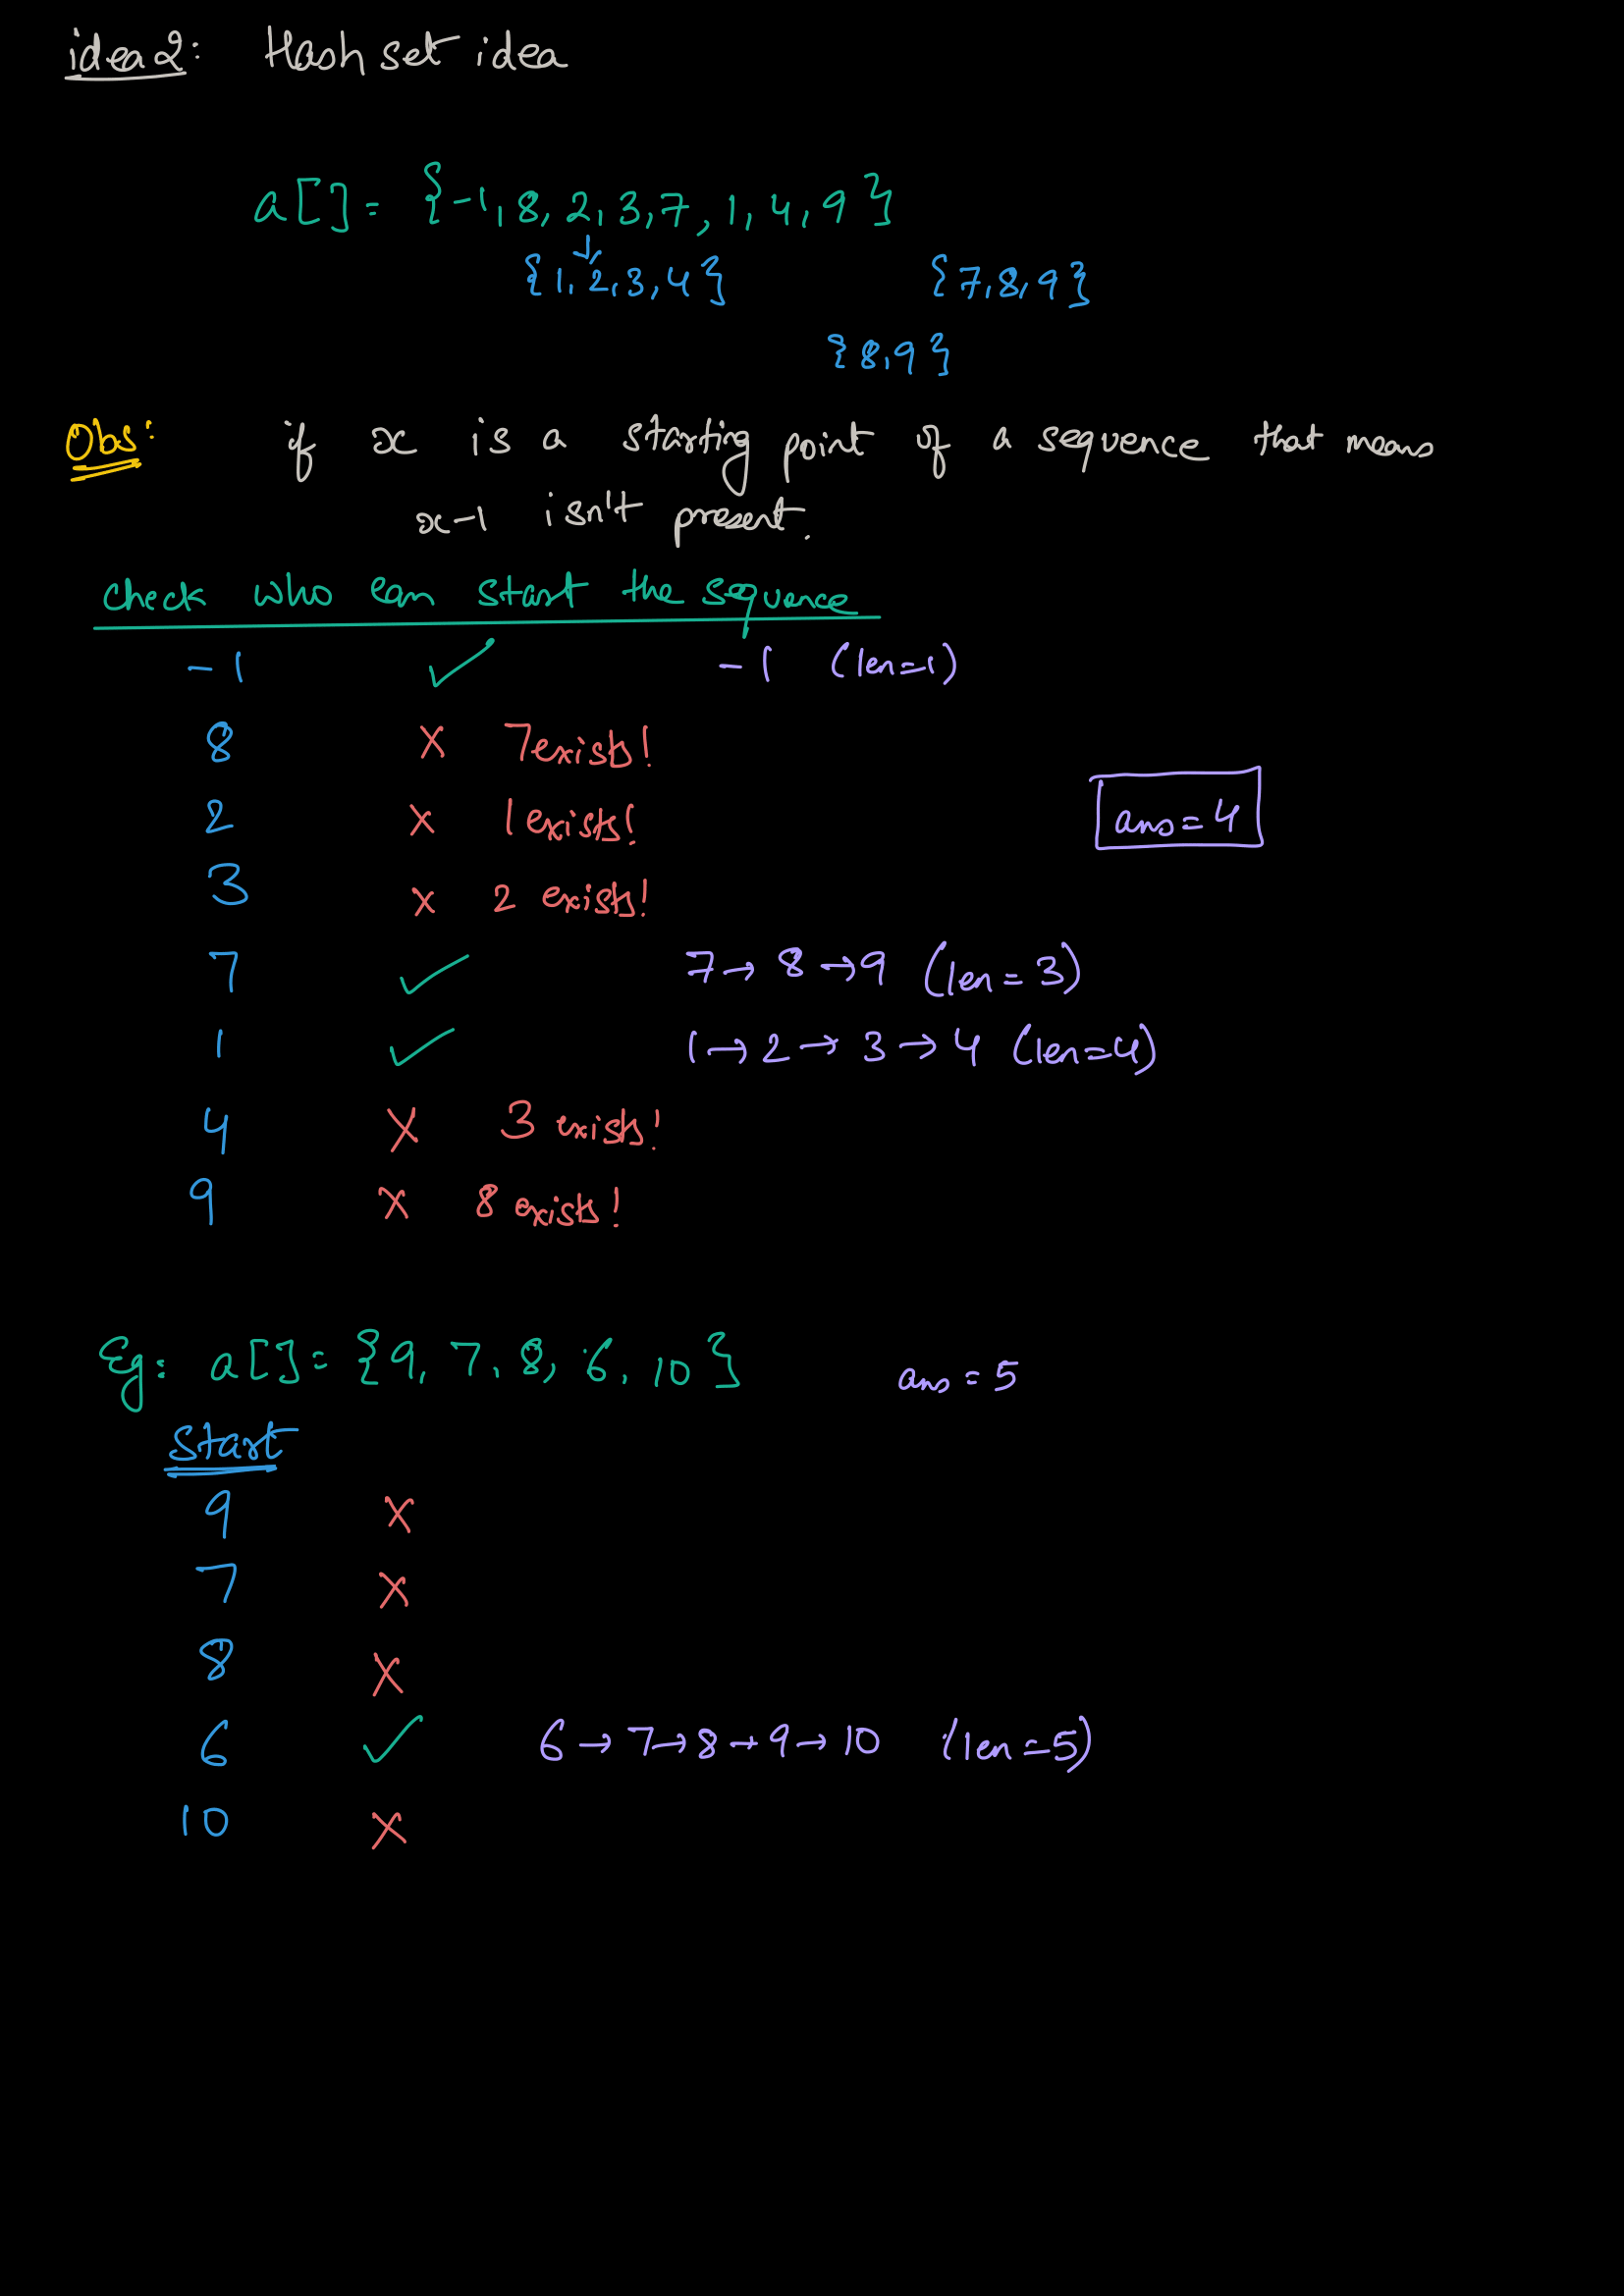 idea 2: Hash set idea
a[] = {-1, 8, 2, 3, 7, 1, 4, 9}
{1, 2, 3, 4} {7, 8, 9}
{8, 9}
Obs: if x is a starting point of a sequence that means
x-1 isn't present.
check who can start the sequence
-1 ✓ -1 (len=1)
8 ✗ 7 exists!
2 ✗ 1 exists!
ans = 4
3 ✗ 2 exists!
7 ✓ 7 → 8 → 9 (len = 3)
1 ✓ 1 → 2 → 3 → 4 (len=4)
4 ✗ 3 exists!
9 ✗ 8 exists!
Eg: a[] = {9, 7, 8, 6, 10} ans = 5
Start
9 ✗
7 ✗
8 ✗
6 ✓ 6 → 7 → 8 → 9 → 10 (len=5)
10 ✗